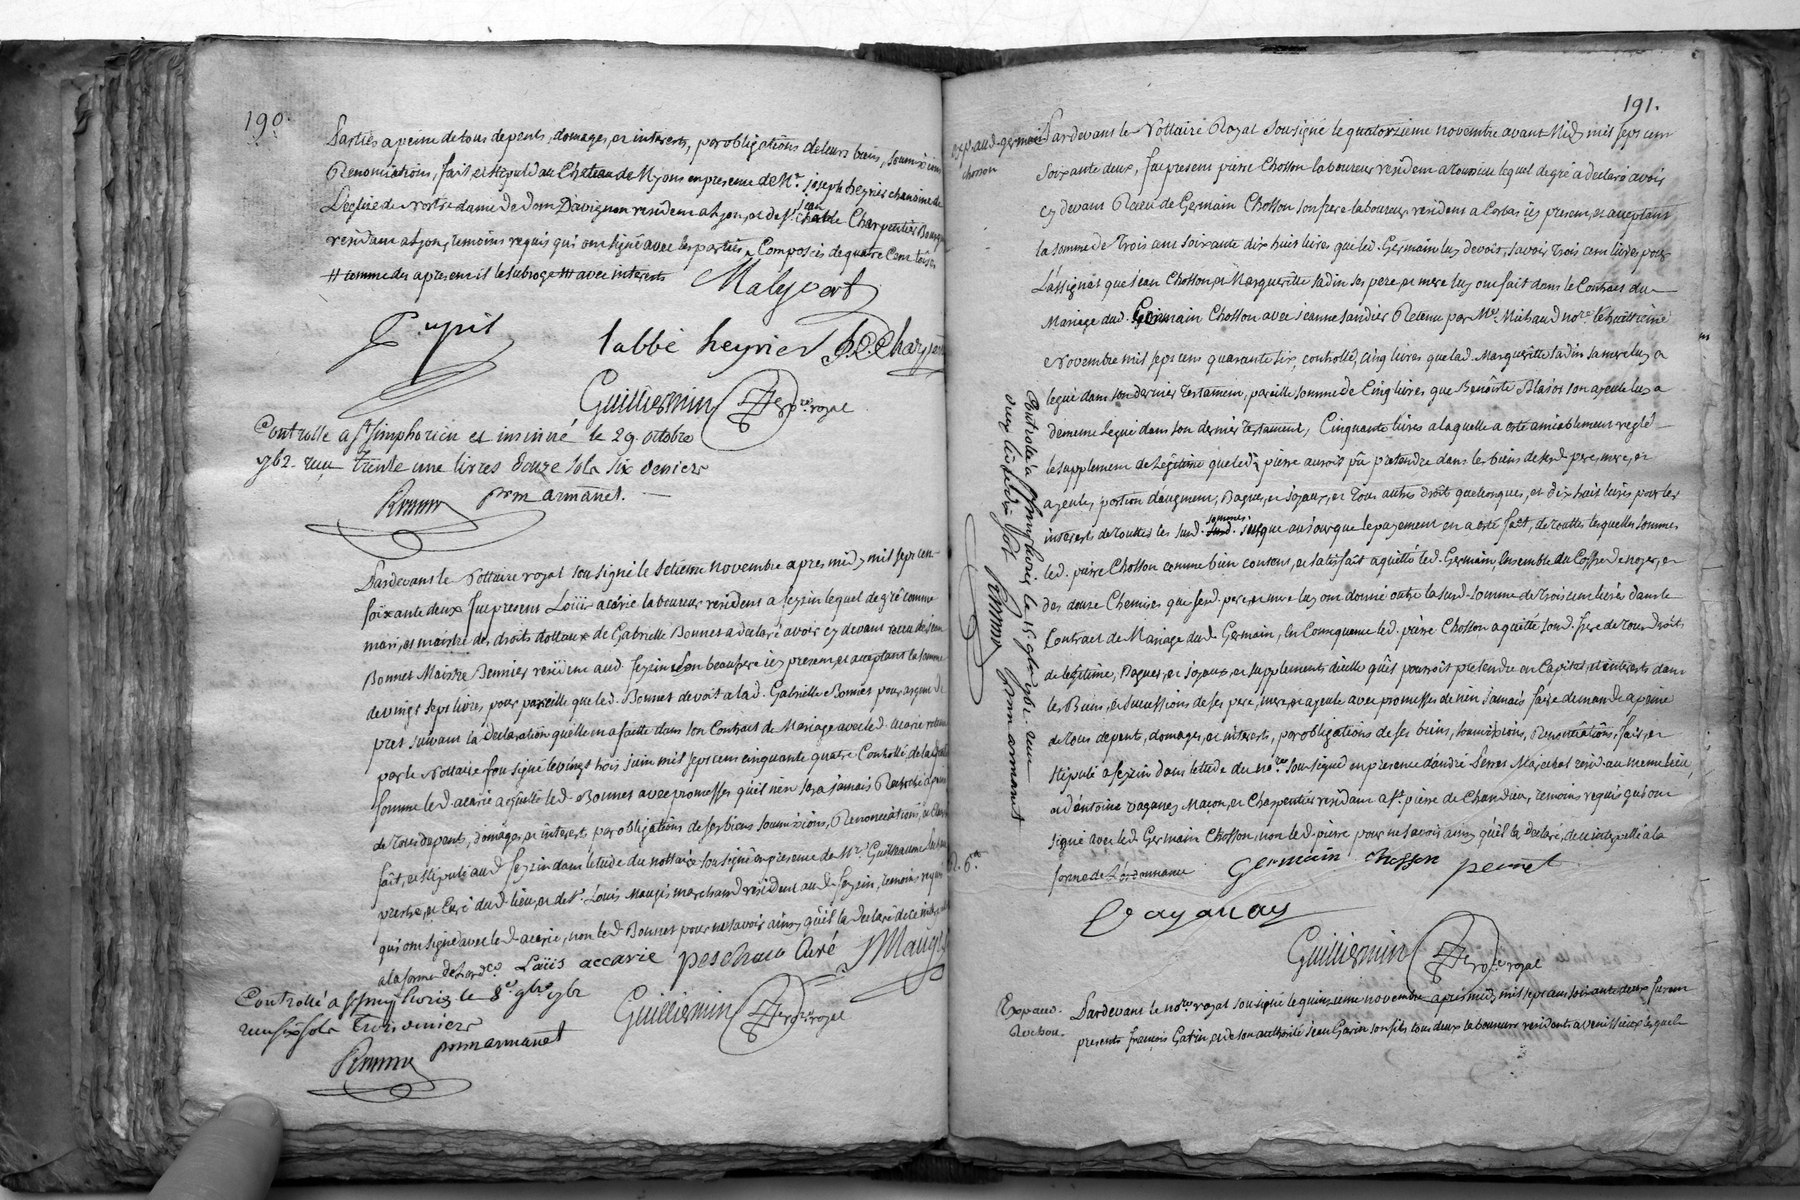 190.
Parties a peine de tous depents, domages, et interests, par obligations de leurs biens, soumissions
Renonciations, fait et stipulé au Chateau de Mions en presence de Mr. joseph heyrier chanoine de
L'eglise de nostre dame de dom Davignon resident a Lyon, et de Sr. jean Charle Charpentier Bourgeois
resident a Lyon, temoins requis qui ont signé avec les parties Composées de quatre Cent toises
# comme des apresent il le subroge # avec interests
Malyvert
Pupil labbé heyrier Charpentier
Guilliermin nore. royal
Controllé a St. simphorien et insinué le 29. octobre
1762. reçu trente une livres douze sols six deniers
armanet.
Pardevant le Nottaire royal sousigné le septieme novembre apres midy mil sept cen
soixante deux fut present Loüis acarie laboureur resident a feyzin lequel de gré comme
mari, et maistre des droits dottaux de Gabrielle Bonnet a declaré avoir cy devant receu de
Bonnet Maistre resident aud. feyzin son beaupere icy present et acceptant la somme
de vingt sept livres, pour pareille que led. Bonnet devoit a lad. Gabrielle Bonnet pour argent de
pret suivant la declaration quelle en a faitte dans son Contract de Mariage avec led. acarie retenu
par le Nottaire sousigné le vingt trois juin mil sept cens cinquante quatre Controllé de laquelle
somme led. acarie a quitté led. Bonnet avec promesses qu'il n'en sera jamais Recherché a peine
de tous depents, domages, et interests, par obligations de ses biens soumissions, Renonciations, et clauses
fait, et stipulé aud. feyzin dans letude du nottaire sousigné en presence de Mr. Guilleaume
prestre, et Curé dud. lieu, et de Sr. Louis Maugis marchand resident aud. feyzin, temoins requis
qui ont signé avec led. acarie, non led. Bonnet pour ne savoir ainsy qu'il la declaré de ce interpellé
a la forme de Lordce. Laüis accarie peschaud Curé Maugis
Controllé a St. simphorien le 8e. 9bre. 1762
reçu six sols trois deniers
armanet
Guilliermin nore. royal
191.
exp. aud. germain
chosson
Pardevant le Nottaire Royal sousigné le quatorzieme novembre avant Midy mil sept cens
soixante deux, fut present pierre Chosson laboureur resident a toussieu lequel de gré a declaré avoir
cy devant Receu de Germain Chosson son frere laboureur resident a Corbas icy present, et acceptant
la somme de Trois cent soixante dix huit livres que led. Germain luy devoit, savoir trois cent livres pour
L'assignat que jean Chosson, et Margueritte Jadin ses pere, et mere luy ont fait dans le Contract du
Mariage dud. Germain Chosson avec jeanne Jandier Retenu par Me. Michaud nore. le huittieme
Novembre mil sept cens quarante six, controllé, cinq livres que lad. Marguerite Jadin sa mere luy a
legué dans son dernier testament, pareille somme de Cinq livres que Benoiste Blasor son ayeule luy a
de meme legué dans son dernier testament, Cinquante livres a laquelle a esté amiablement reglé
le supplement de Legitime que led. pierre auroit pu pretendre dans les biens desd. pere, mere, et
ayeule, portion d'augment, Bagues, et joyaux, et tous autres droits quelconques, et dix huit livres pour les
interests de touttes les susd. sommes jusque au jour que le payement en a esté fait, de touttes lesquelles sommes
led. pierre Chosson comme bien content, et satisfait a quitté led. Germain, Ensemble du Coffre de noyer, et
des douze Chemises que sesd. pere, et mere luy ont donné outre la susd. somme de trois cent livres dans le
Contract de Mariage dud. Germain, En Consequence led. pierre Chosson a quitté sond. frere de tous Droits
de legitime, Bagues, et joyaux, et supplements d'icelle qu'il pourroit pretendre en Capital, et interests dans
les Biens, et successions de ses pere, mere, et ayeule avec promesses de n'en jamais faire demande a peine
de tous depents, domages, et interests, par obligations de ses biens, soumissions, Renonciations, fait, et
stipulé a feyzin dans letude du nore. sousigné en presence d'andré Perret Marechal resid. au meme lieu,
et d'antoine vaganay Maçon, et Charpentier resident a St. pierre de Chandieu, temoins requis qui ont
signé avec led. Germain Chosson, non led. pierre pour ne savoir ainsy qu'il la declaré, de ce interpellé a la
forme de L'ordonnance Germain chosson perret
Vaganay
Guilliermin nore. royal
Controllé a St. simphorien le 15. 9bre. 1762. reçu
armanet
Exp. aud.
Rochon.
Pardevant le nore. royal sousigné le quinzieme novembre apres midy mil sept cens soixante deux furent
presents françois Gavin, et de son authorité jean Gavin son fils tous deux laboureurs residents a venissieux lesquels